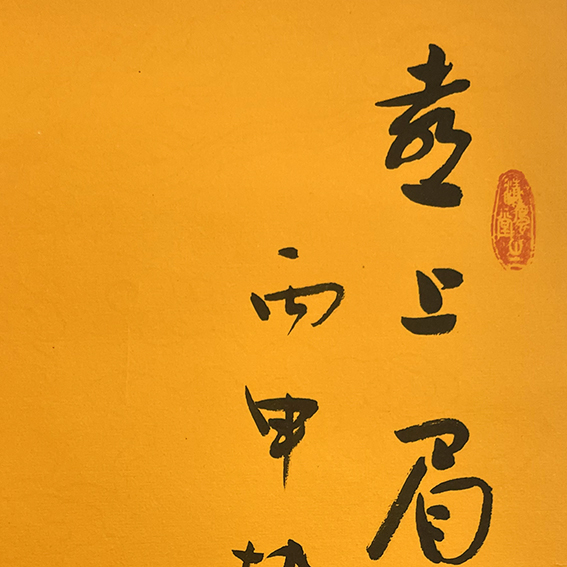 喜上眉
丙申